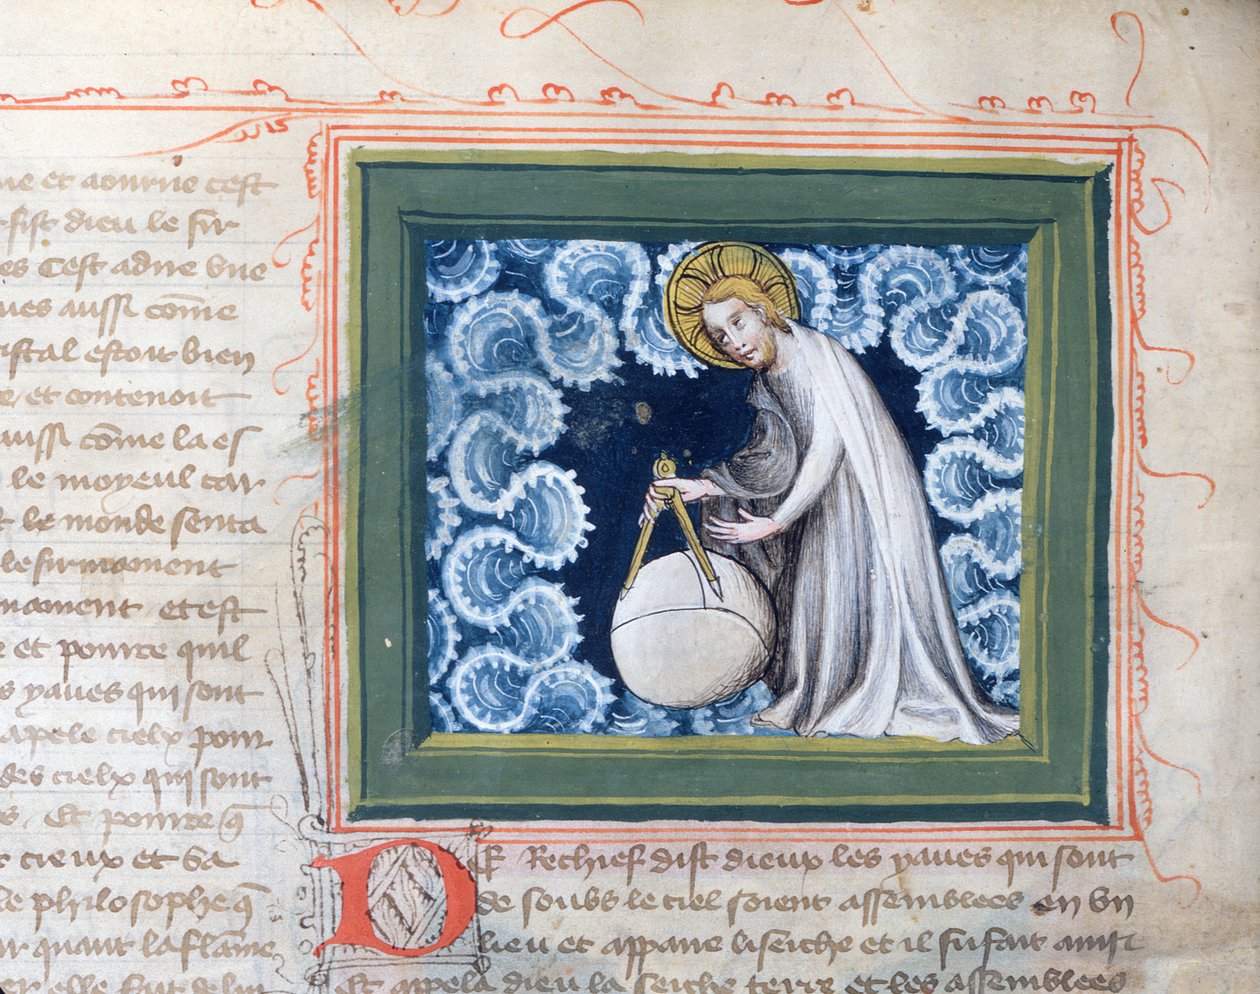 ne et aourne cest
fist dieu le fir
es Cest adire vne
ues aussi cōme
istal estoit bien
et contenoit
aussi cōme la es
le moyeul car
le monde senta
le firmament
mament et est
et pource quil
s yaues qui sont
apele cielx pour
des cielx qui sont
s. Et pource q̄
cieux et sa
le philosophe q̄
ur quant la flāme
er elle fait de lui
DE Rechief dist dieux les yaues qui sont
de soubs le ciel soient assemblees en vn
lieu et appaire li seiche et il fu fait ainsi
Et appela dieu la seiche terre et les assemblees